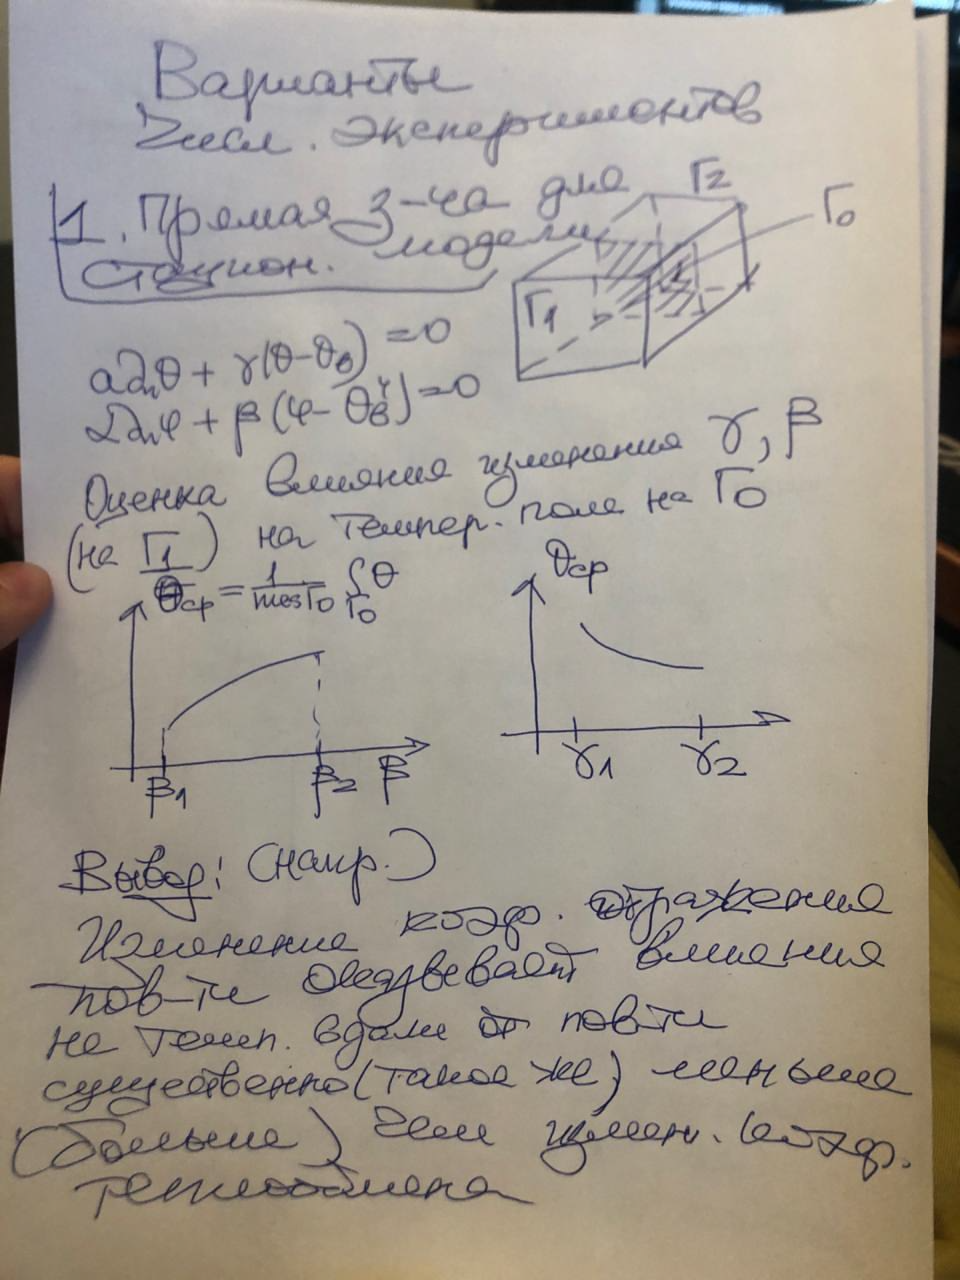 Варианты
числ. экспериментов
1. Прямая з-ча для
стацион. модели
Γ2
Γ0
Γ1
a∂ₙθ + γ(θ-θb) = 0
α∂ₙφ + β(φ-θb⁴) = 0
Оценка влияния изменения γ, β
(на Γ1) на темпер. поле на Γ0
θср = 1/mesΓ0 ∫Γ0 θ
θср
β1 β2 β
γ1 γ2
Вывод: (напр.)
Изменение коэф. отражения
пов-ти оказывает влияния
на темп. вдали от пов-ти
существенно (такое же) меньше
(больше) чем измен. коэф.
теплообмена